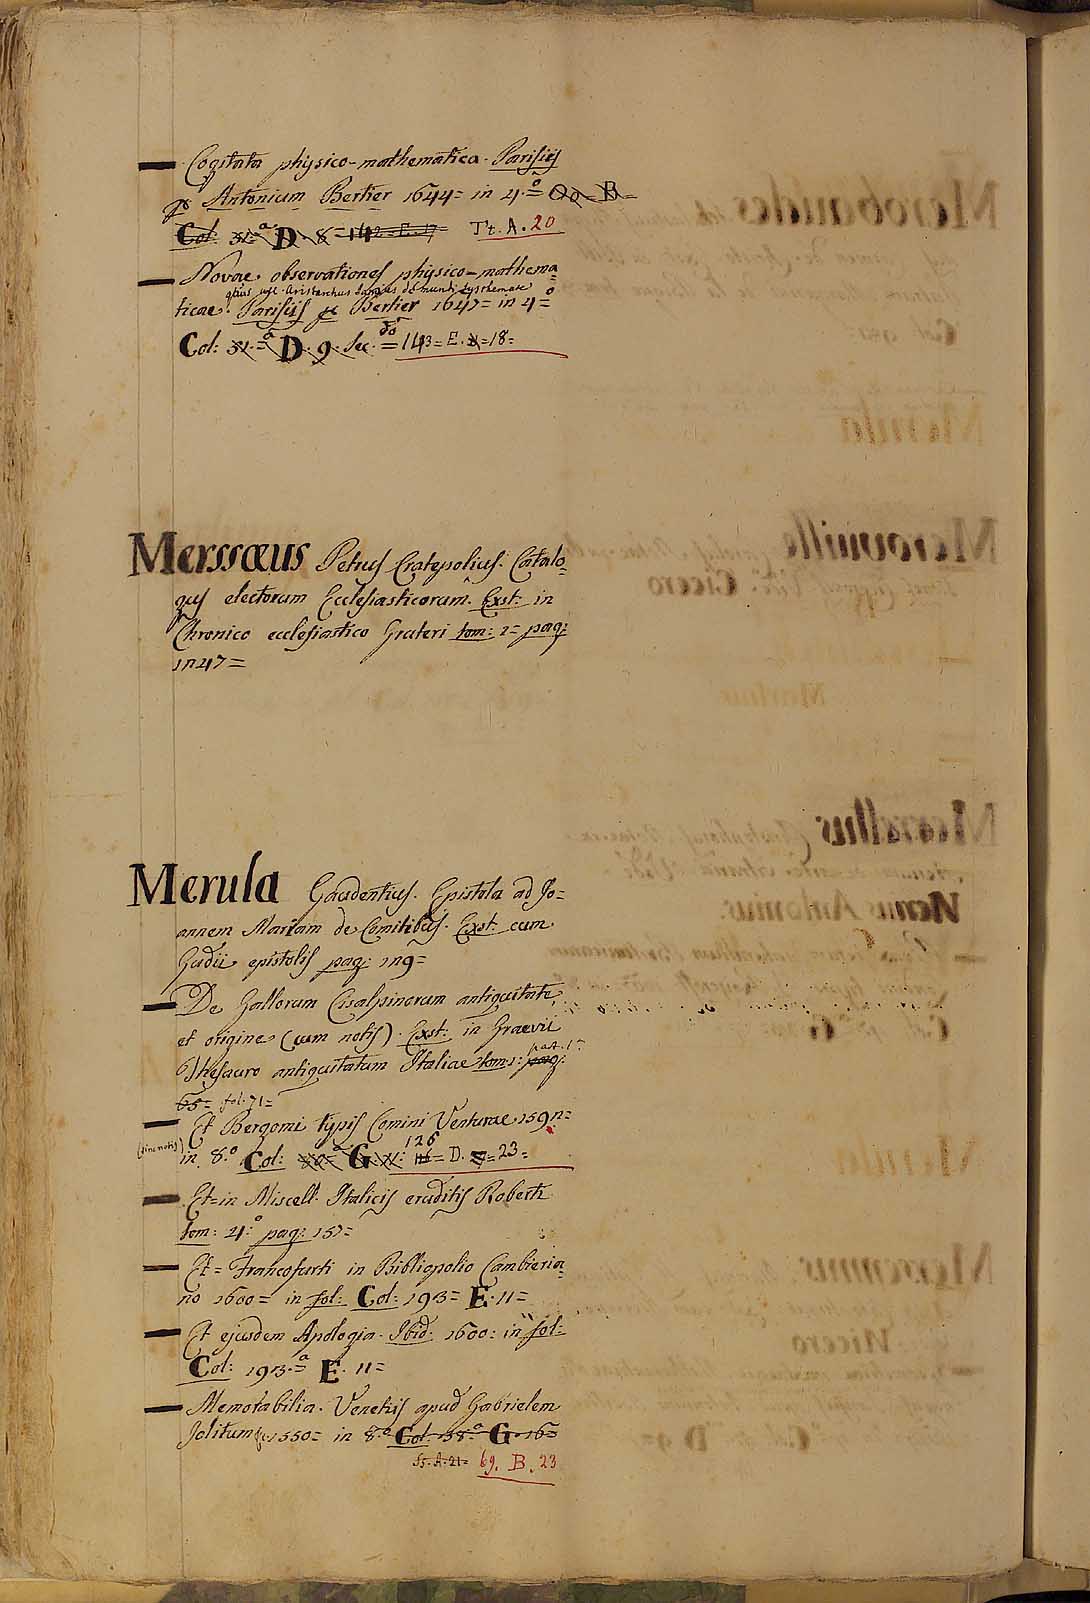 Cogitata physico-mathematica. Parisijs
p. Antonium Bertier 1644= in 4.º= Oo= B=
Col: 31.ª D. 8= 142= E. 17 Tt. A. 20
Novae observationes physico=mathema=
Aristarchus Samius de mundi systemate
ticae. Parisijs p. Bertier 1647= in 4º=
Col: 31.ª D. 9. Sec. dº = 143= E. 18=
Merssœus Petrus Cratepolius. Catalo=
gus electorum Ecclesiasticorum. Exst: in
Chronico ecclesiastico Grateri tom: 2= pag:
Merula Gaudentius. Epistola ad Jo=
annem Mariam de Comitibus. Exst: cum
Gudii epistolis pag: 129=
De Gallorum Cisalpinorum antiquitate,
et origine (cum notis). Exst: in Graevii
Thesauro antiquitatum Italiae tom: 1: pag: part. 1ª
65= fol: 71=
Et Bergomi typis Comini Venturae 1592=
(sine notis) in 8.º Col: G. 126 = D. 23=
Et=in Miscell. Italicis eruditis Roberti
tom: 4.º pag: 157=
Et= Francofurti in Bibliopolio Cambieria=
no 1600= in fol: Col: 193= E. 11=
Et ejusdem Apologia. Ibid: 1600: in fol:
Col: 193.ª= E. 11=
Memorabilia. Venetiis apud Gabrielem
Jolitum 1550= in 8.º Col: 38.ª G. 16=
Ss. A. 21= 69. B. 23